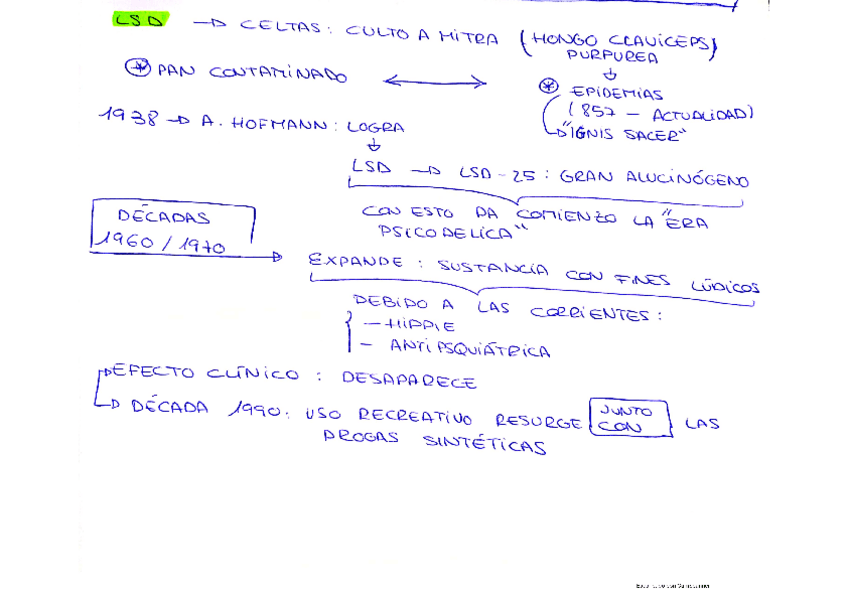 LSD → CELTAS: CULTO A MITRA (HONGO CLAVICEPS)
PURPUREA
* PAN CONTAMINADO ↔ * EPIDEMIAS
(857 - ACTUALIDAD)
"IGNIS SACER"
1938 → A. HOFMANN: LOGRA
LSD → LSD-25: GRAN ALUCINÓGENO
CON ESTO DA COMIENZO LA "ERA
PSICODELICA"
DÉCADAS
1960 / 1970
EXPANDE: SUSTANCIA CON FINES LÚDICOS
DEBIDO A LAS CORRIENTES:
- HIPPIE
- ANTIPSQUIÁTRICA
EFECTO CLÍNICO: DESAPARECE
DÉCADA 1990: USO RECREATIVO RESURGE JUNTO CON LAS
DROGAS SINTÉTICAS